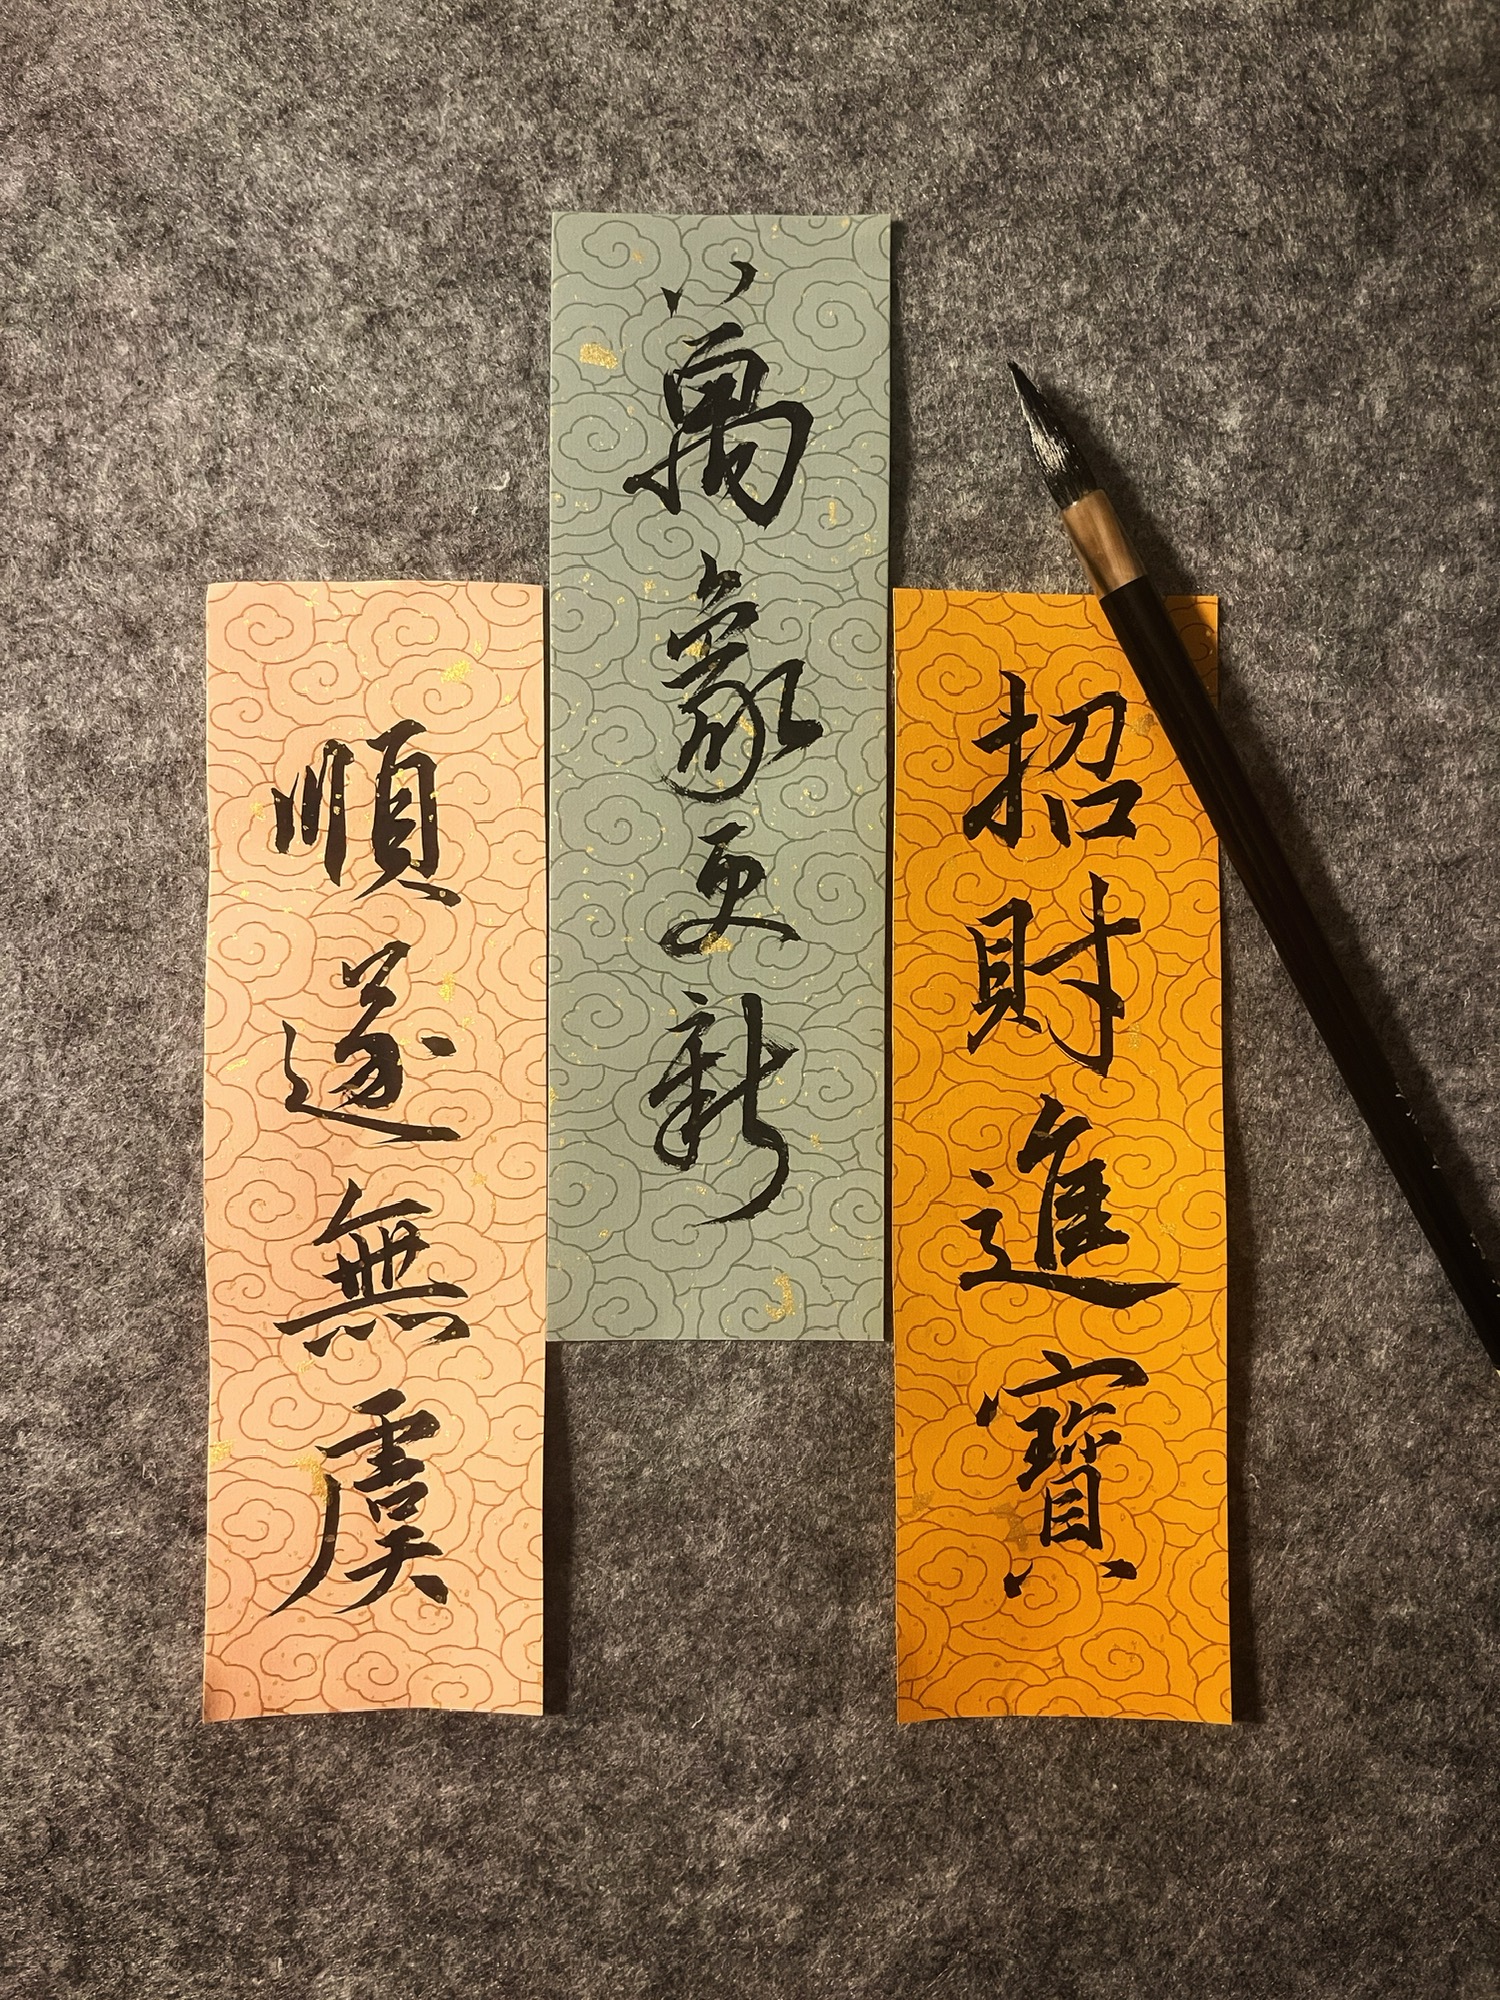 招財進寶
萬象更新
順遂無虞